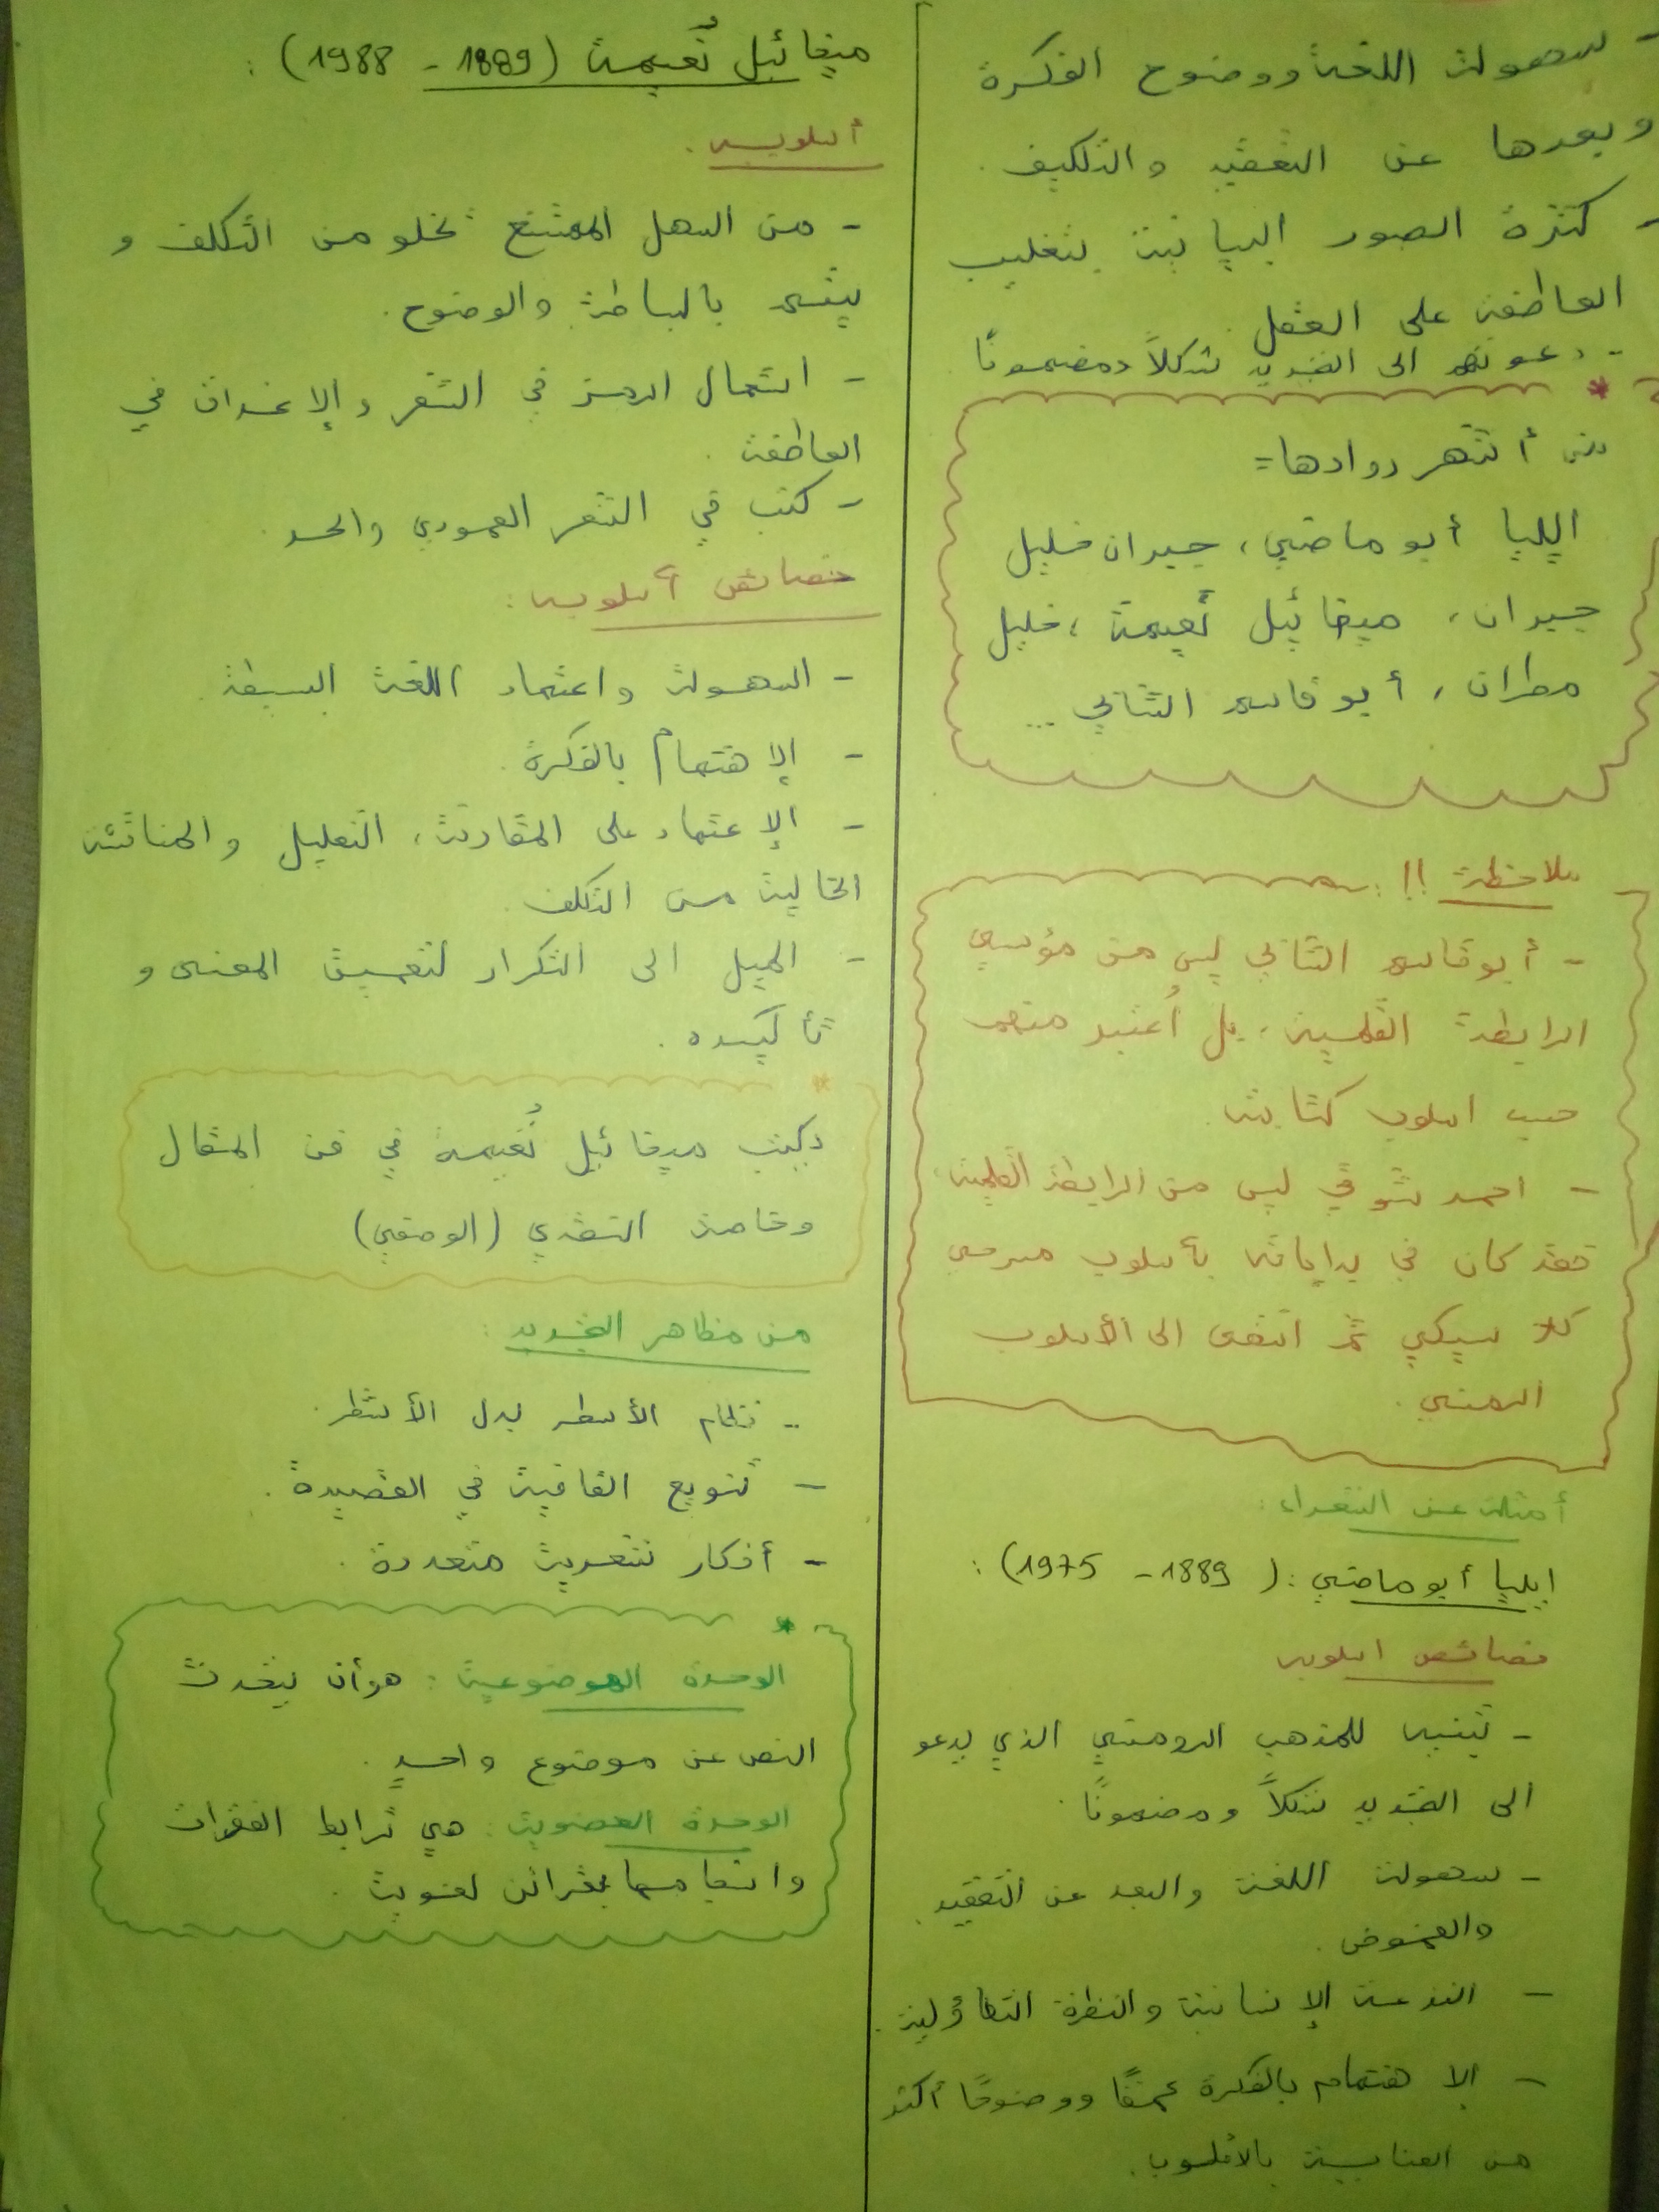 - سهولة اللغة ووضوح الفكرة
وبعدها عن التعقيد والتكليف .
- كثرة الصور البيانية بتغليب
العاطفة على العقل .
- دعوتهم الى التجديد شكلاً ومضمونًا .
* من أشهر روادها =
إيليا أبو ماضي، جبران خليل
جبران، ميخائيل نُعيمة، خليل
مطران، أبو قاسم الشابي ...
ملاحظة !! :
- أبو قاسم الشابي ليس من مؤسسي
الرابطة القلمية، بل اُعتبر منهم
حسب اسلوب كتابته .
- احمد شوقي ليس من الرابطة القلمية،
فقد كان في بداياته بأسلوب مسرحي
كلاسيكي ثم انتقى الى الأسلوب
الرمنسي .
أمثلة عن الشعراء :
إيليا أبو ماضي : ( 1889 - 1975) :
خصائص اسلوبه
- تبنيه للمذهب الرومنسي الذي يدعو
الى التجديد شكلاً ومضمونًا .
- سهولة اللغة والبعد عن التعقيد .
والغموض .
- النزعة الإنسانية والنظرة التفاؤلية .
- الإهتمام بالفكرة عمقًا ووضوحًا أكثر
من العناية بالأسلوب .
ميخائيل نُعيمة (1889 - 1988) :
أسلوبه .
- من السهل الممتنع تخلو من التكلف و
يتسم بالبساطة والوضوح .
- استعمال الرمز في الشعر والإغراق في
العاطفة .
- كتب في الشعر العمودي والحر .
خصائص أسلوبه :
- السهولة واعتماد اللغة البسيطة .
- الإهتمام بالفكرة .
- الإعتماد على المقارنة، التعليل والمناقشة
الخالية من التكلف .
- الميل الى التكرار لتعميق المعنى و
تأكيده .
* وكتب ميخائيل نُعيمة في فن المقال
وخاصة النقدي (الوصفي)
من مظاهر التجديد :
- نظام الأسطر بدل الأشطر .
- تنويع القافية في القصيدة .
- أفكار شعرية متعددة .
* الوحدة الموضوعية : هو أن يتحدث
النص عن موضوع واحدٍ .
الوحدة العضوية : هي ترابط الفقرات
وانسجامها بقرائن لغوية .